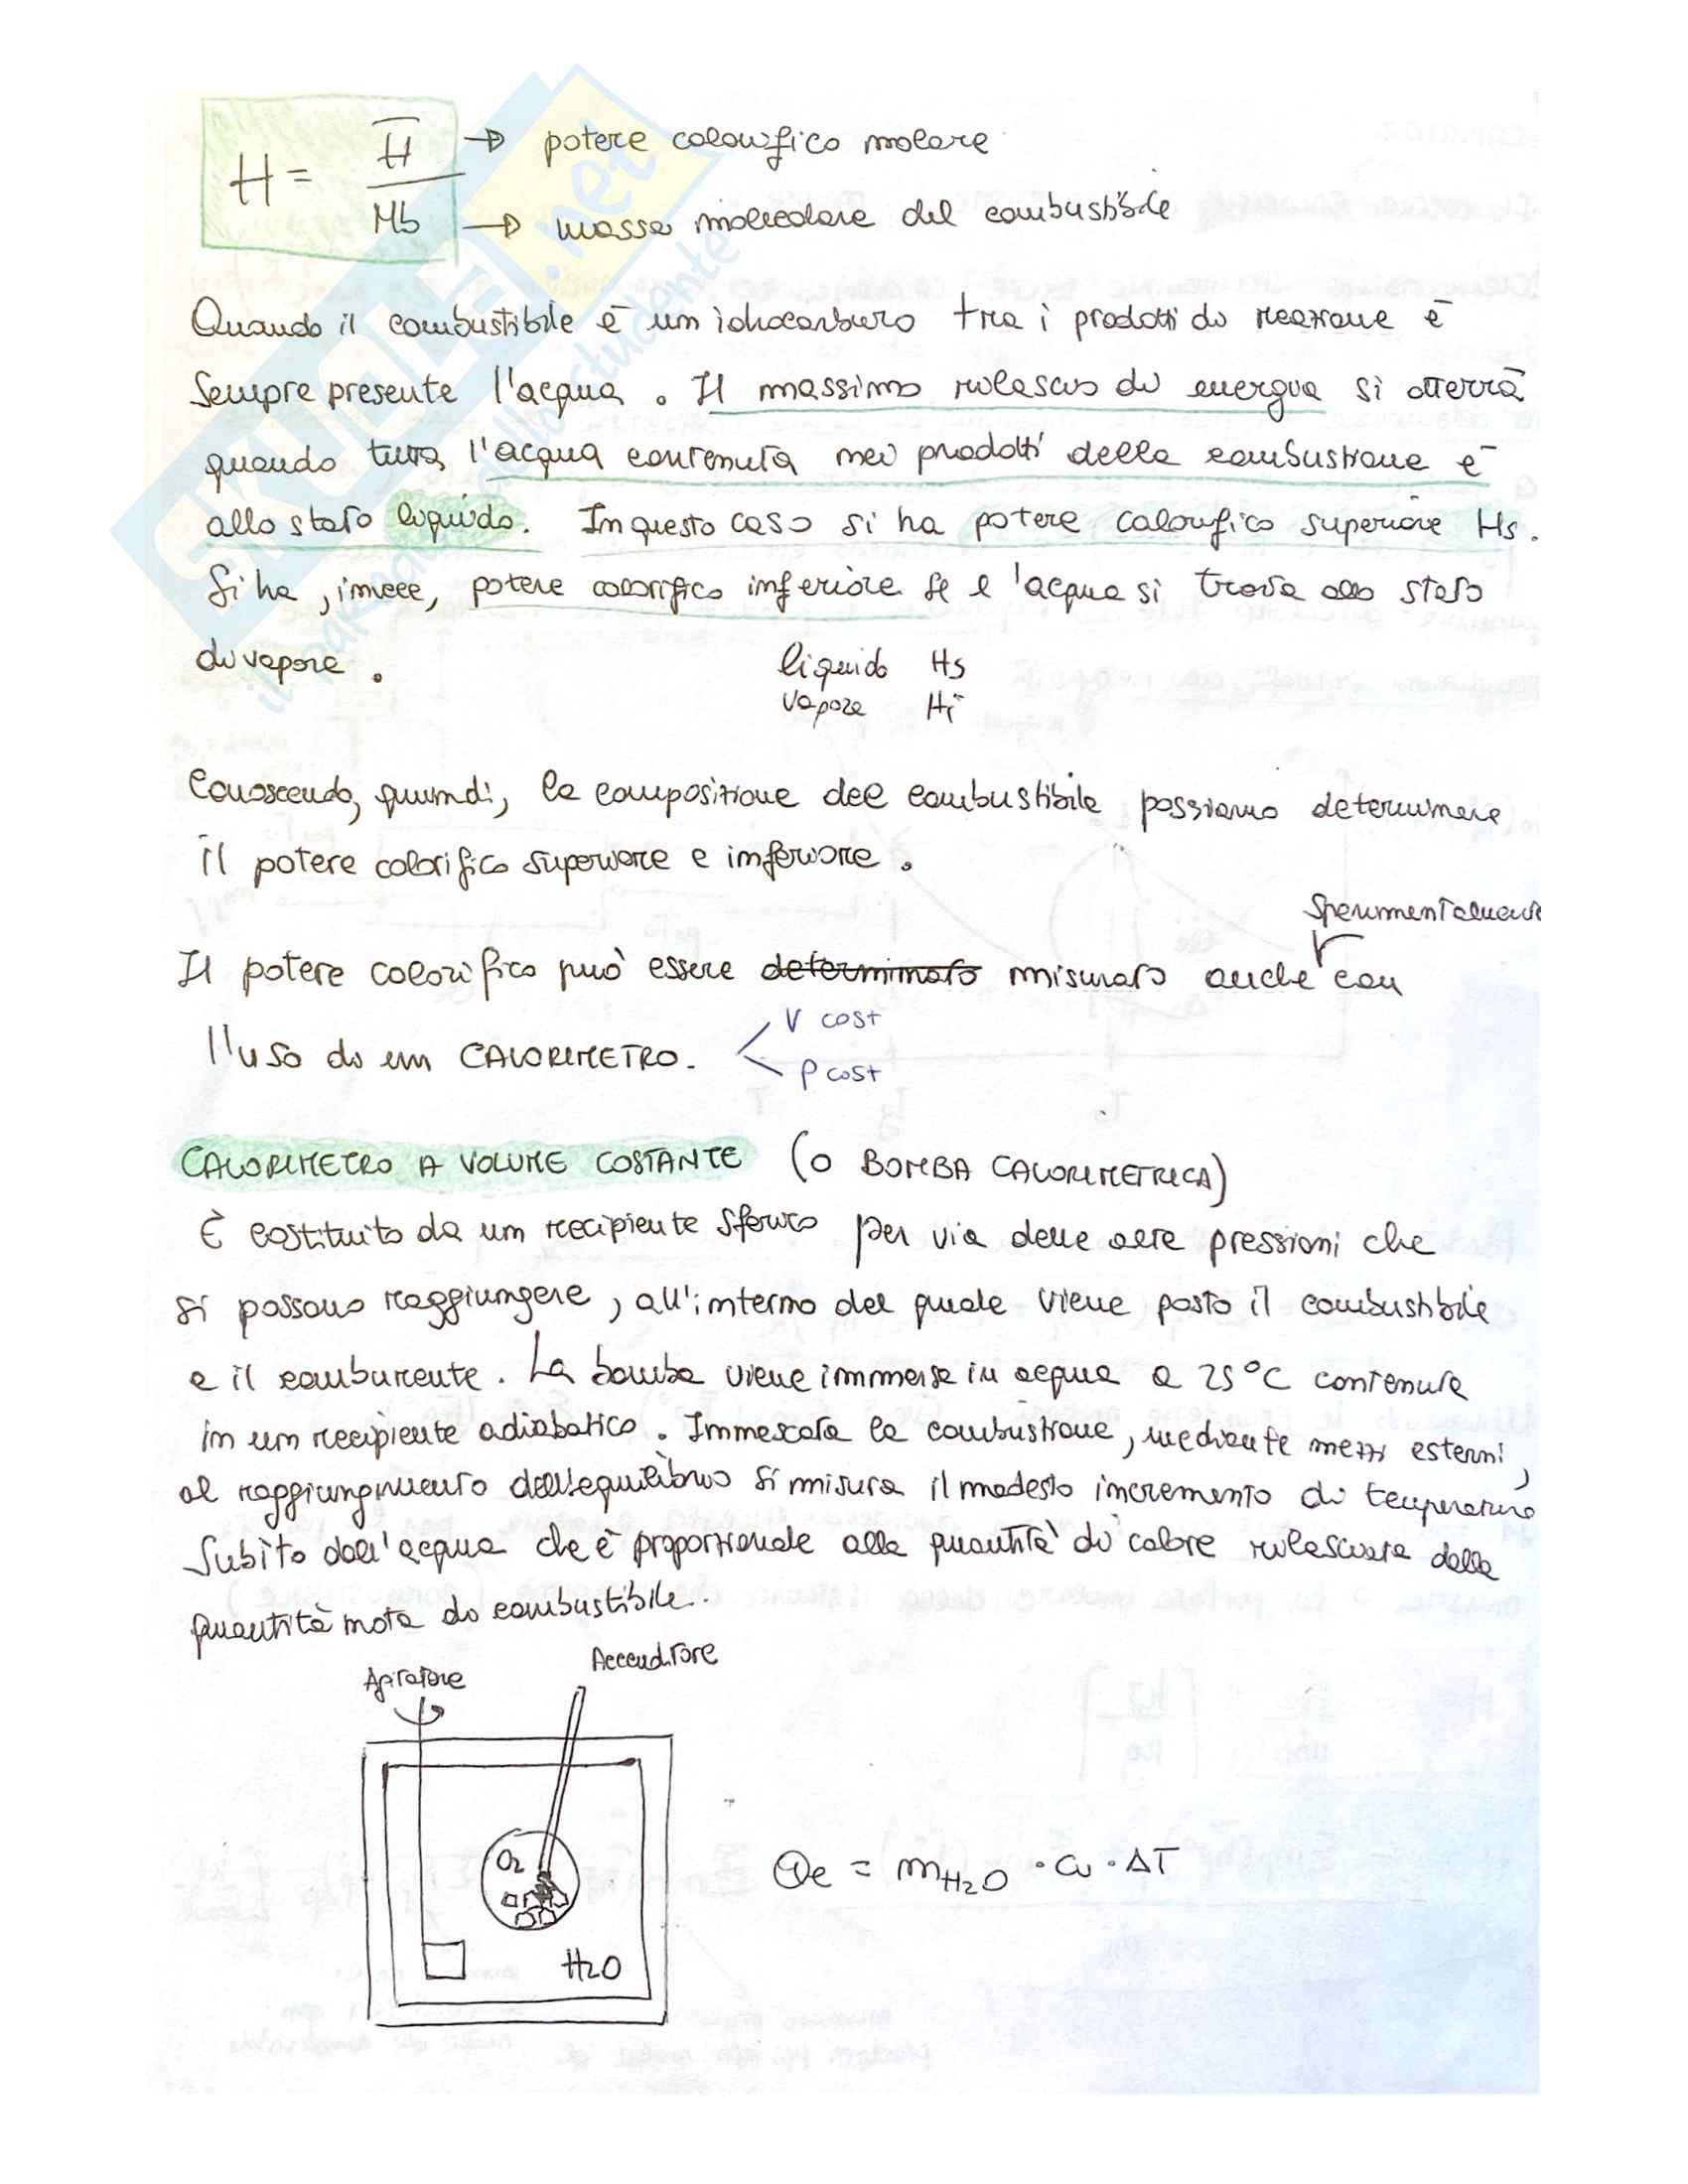 H = H̅ / Mb
→ potere calorifico molare
→ massa molecolare del combustibile
Quando il combustibile è un idrocarburo tra i prodotti di reazione è
sempre presente l'acqua. Il massimo rilascio di energia si otterrà
quando tutta l'acqua contenuta nei prodotti della combustione è
allo stato liquido. In questo caso si ha potere calorifico superiore Hs.
Si ha, invece, potere calorifico inferiore se l'acqua si trova allo stato
di vapore.
liquido Hs
vapore Hi
Conoscendo, quindi, la composizione del combustibile possiamo determinare
il potere calorifico superiore e inferiore.
Sperimentalmente
Il potere calorifico può essere determinato misurato anche con
l'uso di un CALORIMETRO.
V cost
P cost
CALORIMETRO A VOLUME COSTANTE (O BOMBA CALORIMETRICA)
È costituito da un recipiente sferico per via delle alte pressioni che
si possono raggiungere, all'interno del quale viene posto il combustibile
e il comburente. La bomba viene immersa in acqua a 25°C contenuta
in un recipiente adiabatico. Innescata la combustione, mediante mezzi esterni,
al raggiungimento dell'equilibrio si misura il modesto incremento di temperatura
subito dall'acqua che è proporzionale alla quantità di calore rilasciata dalla
quantità nota di combustibile.
Agitatore
Accenditore
O2
H2O
Qe = mH2O · cv · ΔT
SKUOLA.net
il paradiso dello studente